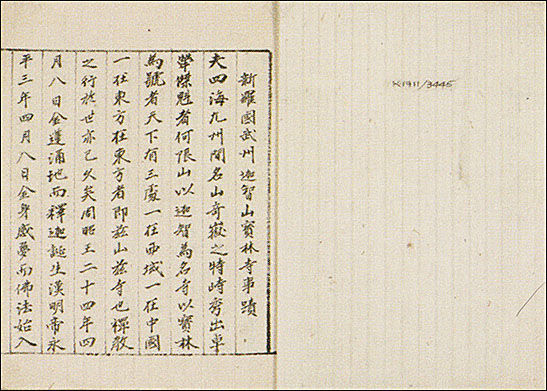 新羅國武州迦智山寶林寺事蹟
夫四海九州間名山奇嶽之特峙秀出卓
犖傑魁者何限山以迦智爲名寺以寶林
爲號者天下有三處一在西域一在中國
一在東方在東方者即玆山玆寺也禪教
之行於世亦已久矣周昭王二十四年四
月八日金蓮涌地而釋迦誕生漢明帝永
平三年四月八日金身感夢而佛法始入
K1911/3445